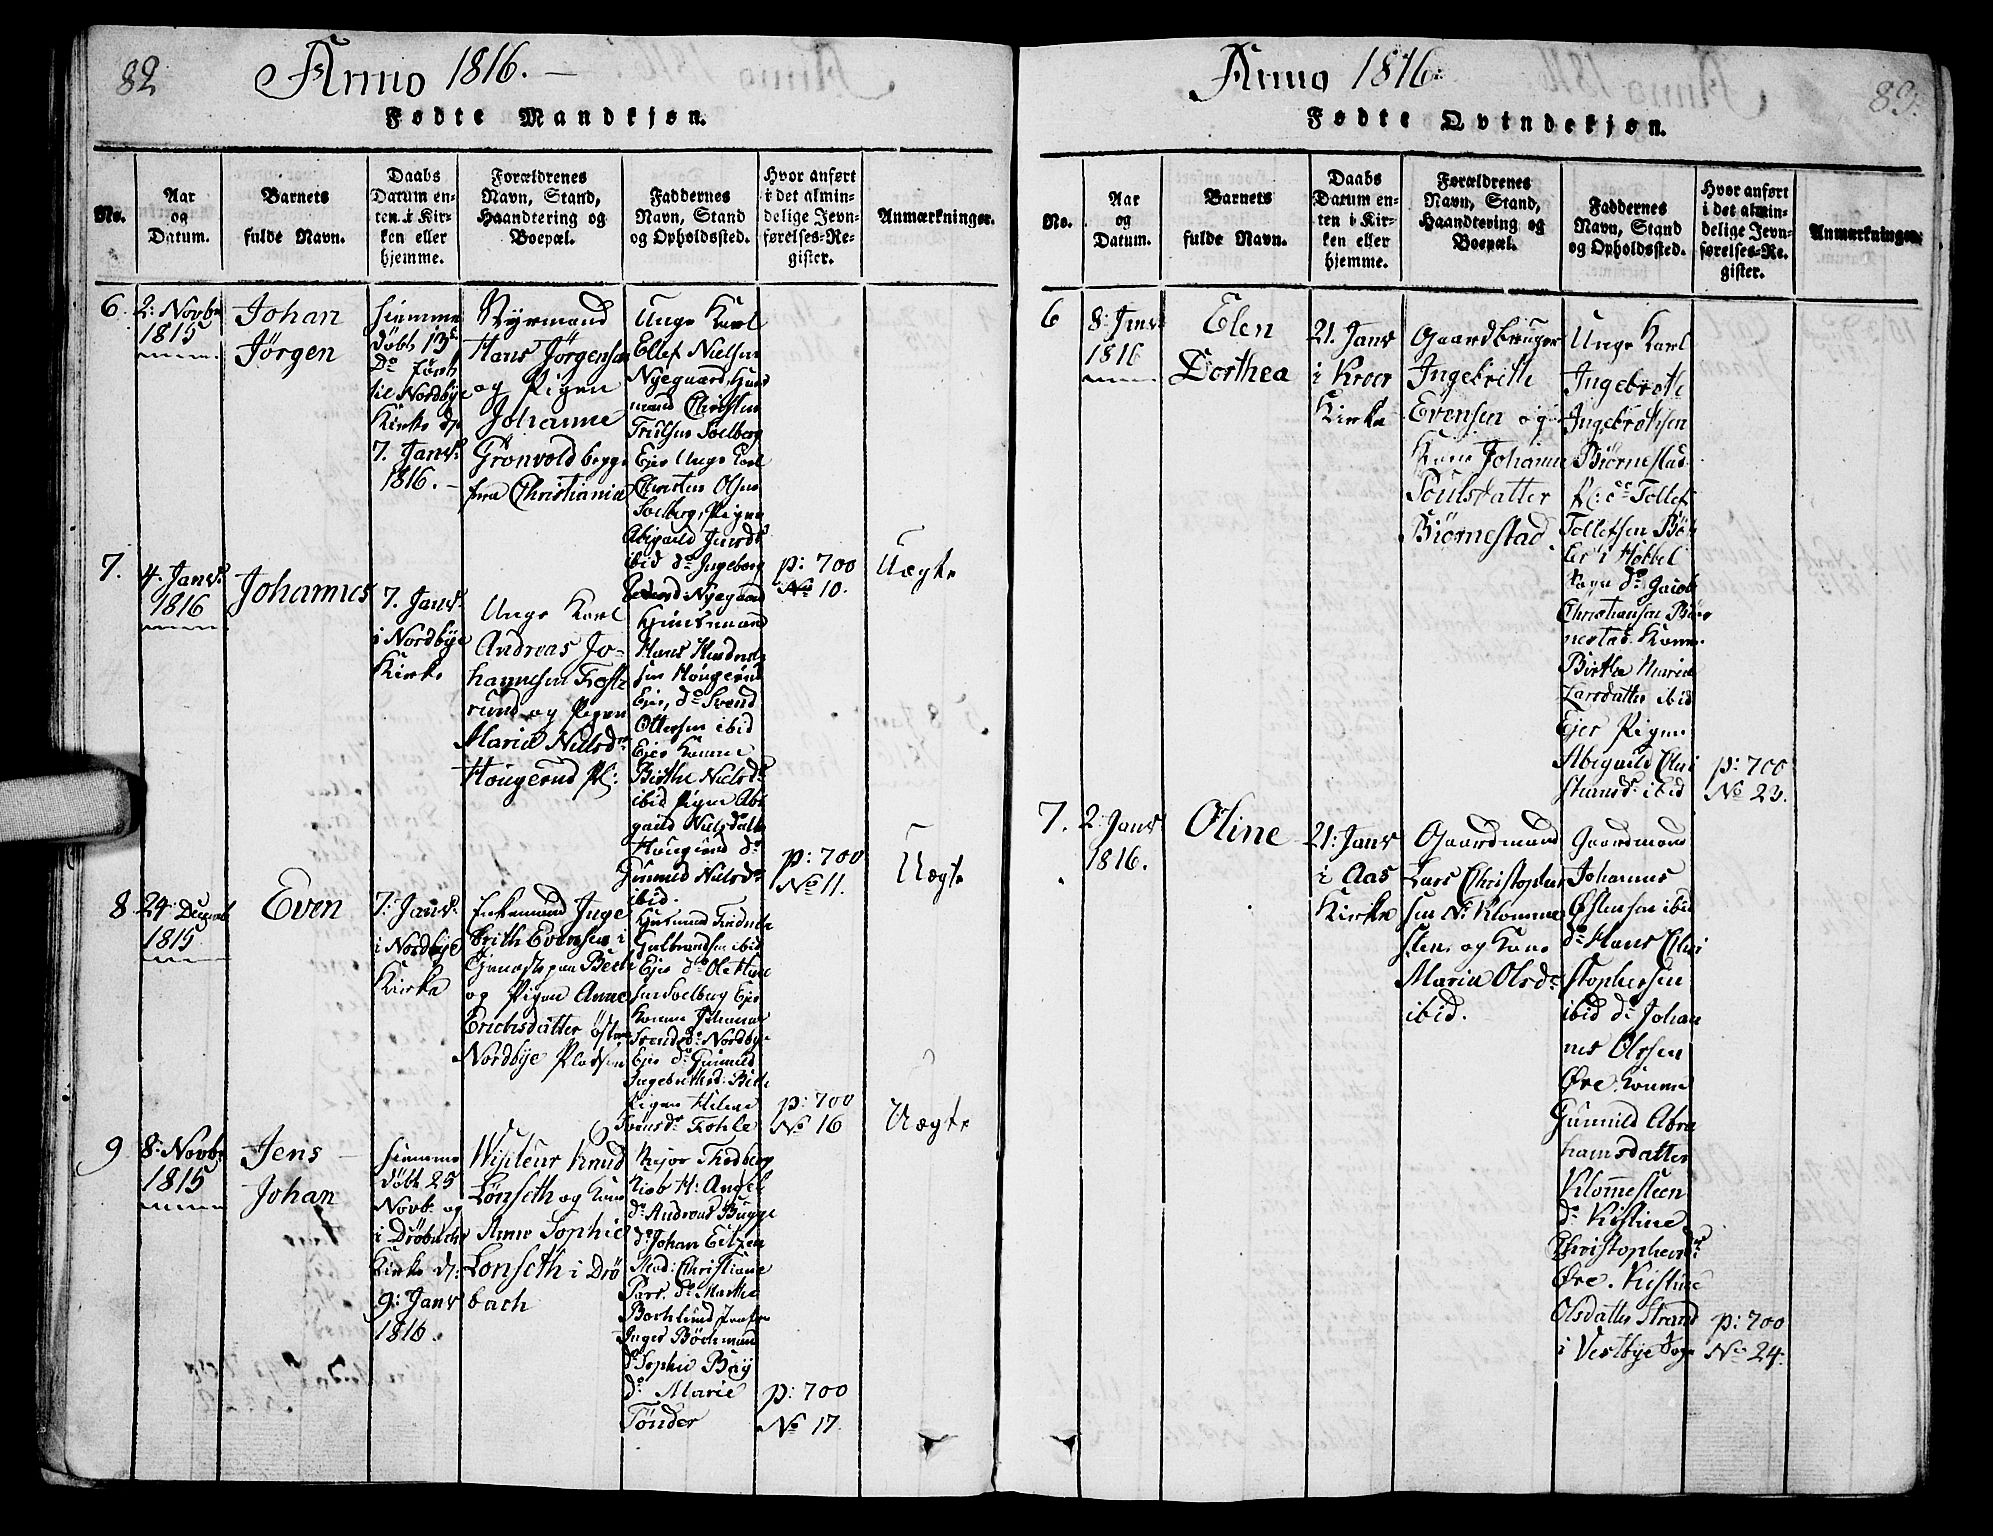 82
Anno 1816.
Fødte Mandkjøn.
No.
Aar
og
Datum.
Barnets
fulde Navn.
Daabs
Datum en-
ten i Kir-
ken eller
hjemme.
Forældrenes
Navn, Stand,
Haandtering og
Boepæl.
Faddernes
Navn, Stand
og Opholdssted.
Hvor anført
i det almin-
delige Jevn-
førelses-Re-
gister.
Anmærkninger.
6
2: Novbr
1815
Johan
Jørgen
hiemme
døbt 13de
Do
til Nordbye
Kirke d
7. Janv:
1816.
Hans Jørgensen
og Pigen
Johanne
Grønvold begge
fra Christiania
Unge Karl
Ellef Nielsen
Nyegaard, Huus
mand Christen
Soelberg
Ejer Unge Karl
Christen Olsen
Soelberg, Pigen
Abigaeld Jensdr
ibid do Ingeborg
Nyegaard
p: 700
No 10.
Uægte
7.
4. Janv:
1816
Johannes
7. Janv:
i Nordbye
Kirke
Unge Karl
Andreas Jo-
hannesen
rund og Pigen
Maria Nielsdr
Hougerud Pl:
Huusmand
Hans
sen Hougerud
Ejer, do Svend
Ottersen ibid
Ejer Konne
Birthe Nielsdr
ibid Pigen Abi
gaeld Nielsdatter
Hougerud do
Gunnild Nielsdr
ibid.
p: 700
No 11.
Uægte
8
24: Decembr
1815
Even
7: Janv:
i Nordbye
Kirke
Enkemand Inge
brith Evensen i
Tjeneste paa
og Pigen Anne
Erichsdatter
Nordbye Pladsen
Gulbrandsen ibid
Ejer do Ole
Soelberg Ejer
Konne Johanne
Svendsdr Nordbye
Ejer do Gunnild
Ingebrithsd:
Pigen Helene
p: 700
No 16
Uægte
9
8: Novbr
1815
Jens
Johan
hiemme
døbt 25
Novb: og
i Drøbachs
Kirke d:
9: Janv
1816.
Knud
Lønseth og Kone
Anne Sophie
Lonseth i Drø
bach
Thodberg
H: Angel
do Andreas Bugge
do Johan Eitzen
Mad: Christiane
do Marthe
Inger Bøchman
do Sophie Baÿ
do Marie
Tønder
p: 700
No 17.
Anno 1816
83.
Fødte Qvindekjøn.
No.
Aar
og
Datum.
Barnets
fulde Navn.
Daabs
Datum en-
ten i Kir-
ken eller
hjemme.
Forældrenes
Navn, Stand,
Haandtering og
Boepæl.
Faddernes
Navn, Stand
og Opholdssted.
Hvor anført
i det almin-
delige Jevn-
førelses-Re-
gister.
Anmærkninger.
6
8: Janv:
1816
Elen
Dorthea
21. Janv
i Kroer
Kirke
Gaardbruger
Ingebreth
Evensen og
Kone Johanne
Poulsdatter
Biørnestad.
Unge Karl
Ingebreth
Ingebrethsen
Biørnestad
Tollef
Tollefsen
Ejer i Hobbel
Sogn do Jacob
Christiansen Biør
nestad. Konne
Birthe Maria
Larsdatter ibid
Ejer Pigen
Abigaeld Chri
stensdr ibid
p: 700
No 23.
7.
2: Janv
1816.
Oline
21: Janv
i Aas
Kirke
Gaardmand
Lars Christopher
sen Nr Klomme
sten og Kone
Maria Olsdr
ibid.
Gaardmand
Johannes
Østensen ibid
do Hans Chri
stophersen
ibid do Johan
nes Olssen
Øre. Konne
Gunnild Abra
hamsdatter
Klommesteen
do Kistine
Christophersdr
Øre. Kistine
Olsdatter Strand
i Vestbye Sogn
p: 700
No 24.